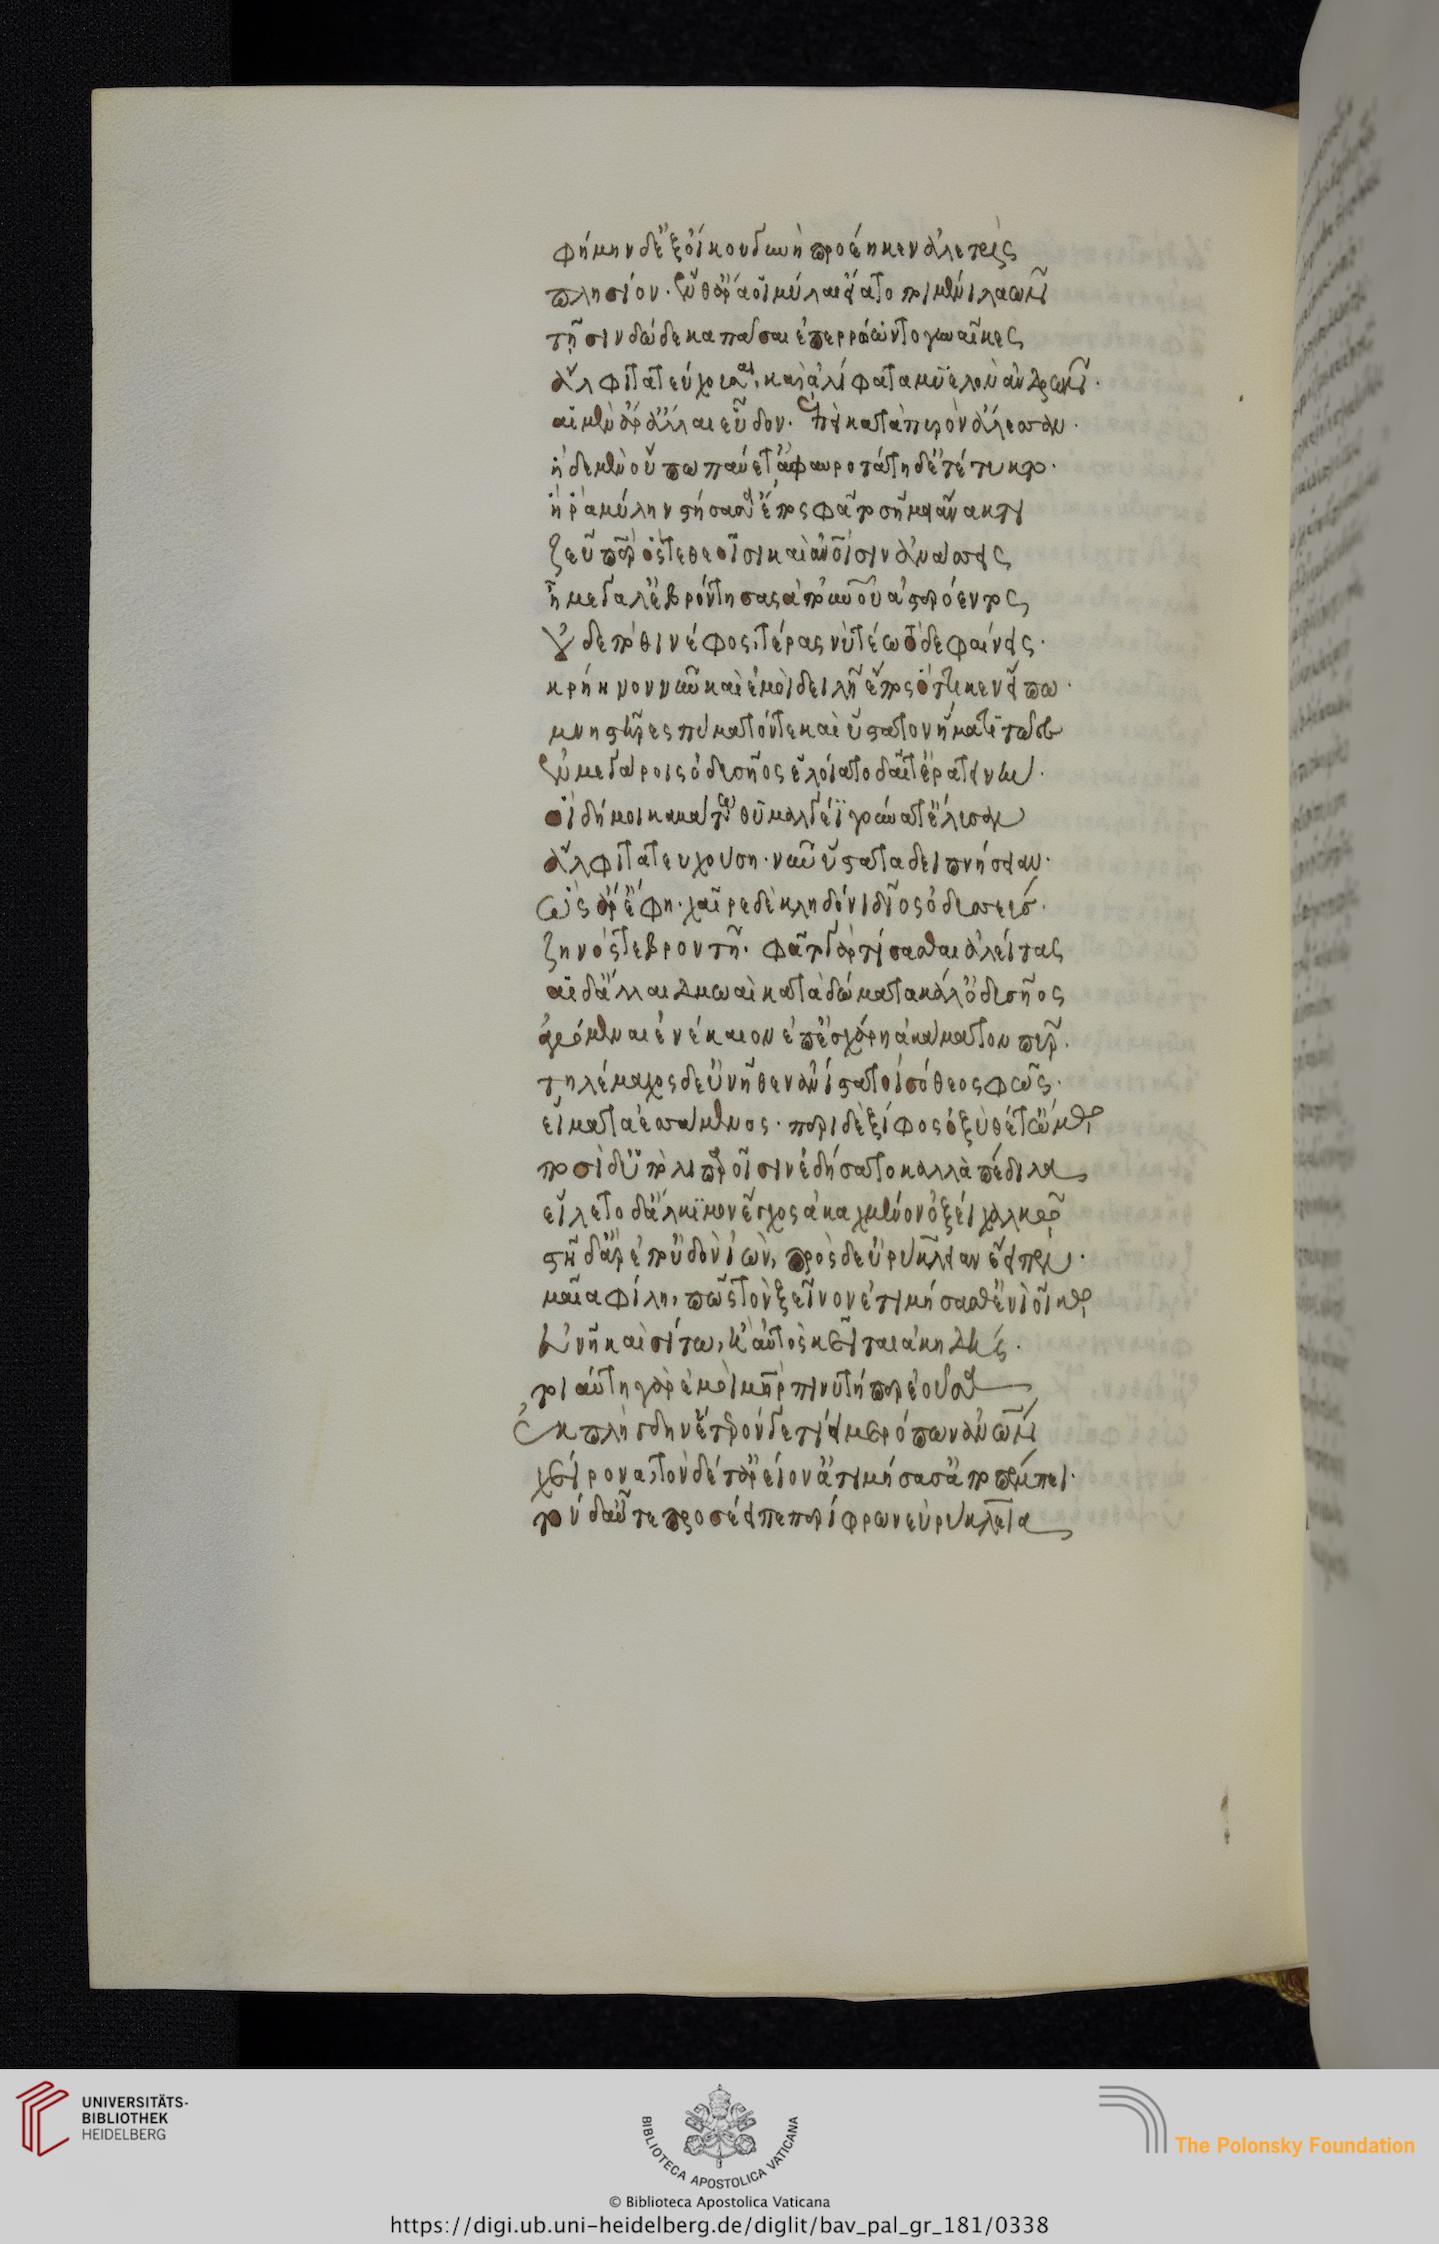 φήμην δ' ἐξ οἴκου γυνὴ προέηκεν ἀλετρὶς
πλησίον. ἔνθ' ἄρα οἱ μύλαι εἵατο ποιμένι λαῶν
τῇσιν δώδεκα πᾶσαι ἐπερρώοντο γυναῖκες
ἄλφιτα τεύχουσαι, καὶ ἀλείφατα μυελὸν ἀνδρῶν.
αἱ μὲν ἄρ' ἄλλαι εὗδον. ἐπεὶ κατὰ πυρὸν ἄλεσσαν.
ἡ δὲ μί' οὔπω παύετ' ἀφαυροτάτη δ' ἐτέτυκτο.
ἥ ῥα μύλην στήσασα ἔπος φάτο σῆμα ἄνακτι
ζεῦ πάτερ ὅστε θεοῖσι καὶ ἀνθρώποισιν ἀνάσσεις
ἦ μεγάλ' ἐβρόντησας ἀπ' οὐρανοῦ ἀστερόεντος
οὐδέ ποθι νέφος, τέρας νύ τεῳ τόδε φαίνεις.
κρῆνον νῦν καὶ ἐμοὶ δειλῇ ἔπος ὅττι κεν εἴπω.
μνηστῆρες πύματόν τε καὶ ὕστατον ἤματι τῷδε
ἐν μεγάροις ὀδυσῆος ἑλοίατο δαῖτ' ἐρατεινὴν.
οἳ δή μοι καμάτῳ θυμαλγέϊ γούνατ' ἔλυσαν
ἄλφιτα τευχούσῃ. νῦν ὕστατα δειπνήσειαν.
ὣς ἄρ' ἔφη. χαῖρε δὲ κλεηδόνι δῖος ὀδυσσεύς.
ζηνός τε βροντῇ. φάτο γὰρ τίσασθαι ἀλείτας
αἱ δ' ἄλλαι δμωαὶ κατὰ δώματα κάλ' ὀδυσῆος
ἀγρόμεναι ἐνέκαιον ἐπ' ἐσχάρῃ ἀκάματον πῦρ.
τηλέμαχος δ' εὐνῆθεν ἀνίστατο ἰσόθεος φώς.
εἵματα ἑσσάμενος. περὶ δὲ ξίφος ὀξὺ θέτ' ὤμῳ
ποσὶ δ' ὑπὸ λιπαροῖσιν ἐδήσατο καλὰ πέδιλα
εἵλετο δ' ἄλκιμον ἔγχος ἀκαχμένον ὀξέϊ χαλκῷ
στῆ δ' ἄρ' ἐπ' οὐδὸν ἰών, πρὸς δ' εὐρύκλειαν ἔειπε.
μαῖα φίλη, πῶς τὸν ξεῖνον ἐτιμήσασθ' ἐνὶ οἴκῳ
εὐνῇ καὶ σίτῳ, ἢ αὔτως κεῖται ἀκηδής.
τοιαύτη γὰρ ἐμοὶ μήτηρ πινυτή περ ἐοῦσα
ἐκπλήγδην ἕτερόν γε τίει μερόπων ἀνθρώπων
χείρονα, τὸν δέ τ' ἀρείον' ἀτιμήσασ' ἀποπέμπει.
τὸν δ' αὖτε προσέειπε περίφρων εὐρύκλεια
UNIVERSITÄTS-
BIBLIOTHEK
HEIDELBERG
BIBLIOTECA APOSTOLICA VATICANA
The Polonsky Foundation
© Biblioteca Apostolica Vaticana
https://digi.ub.uni-heidelberg.de/diglit/bav_pal_gr_181/0338